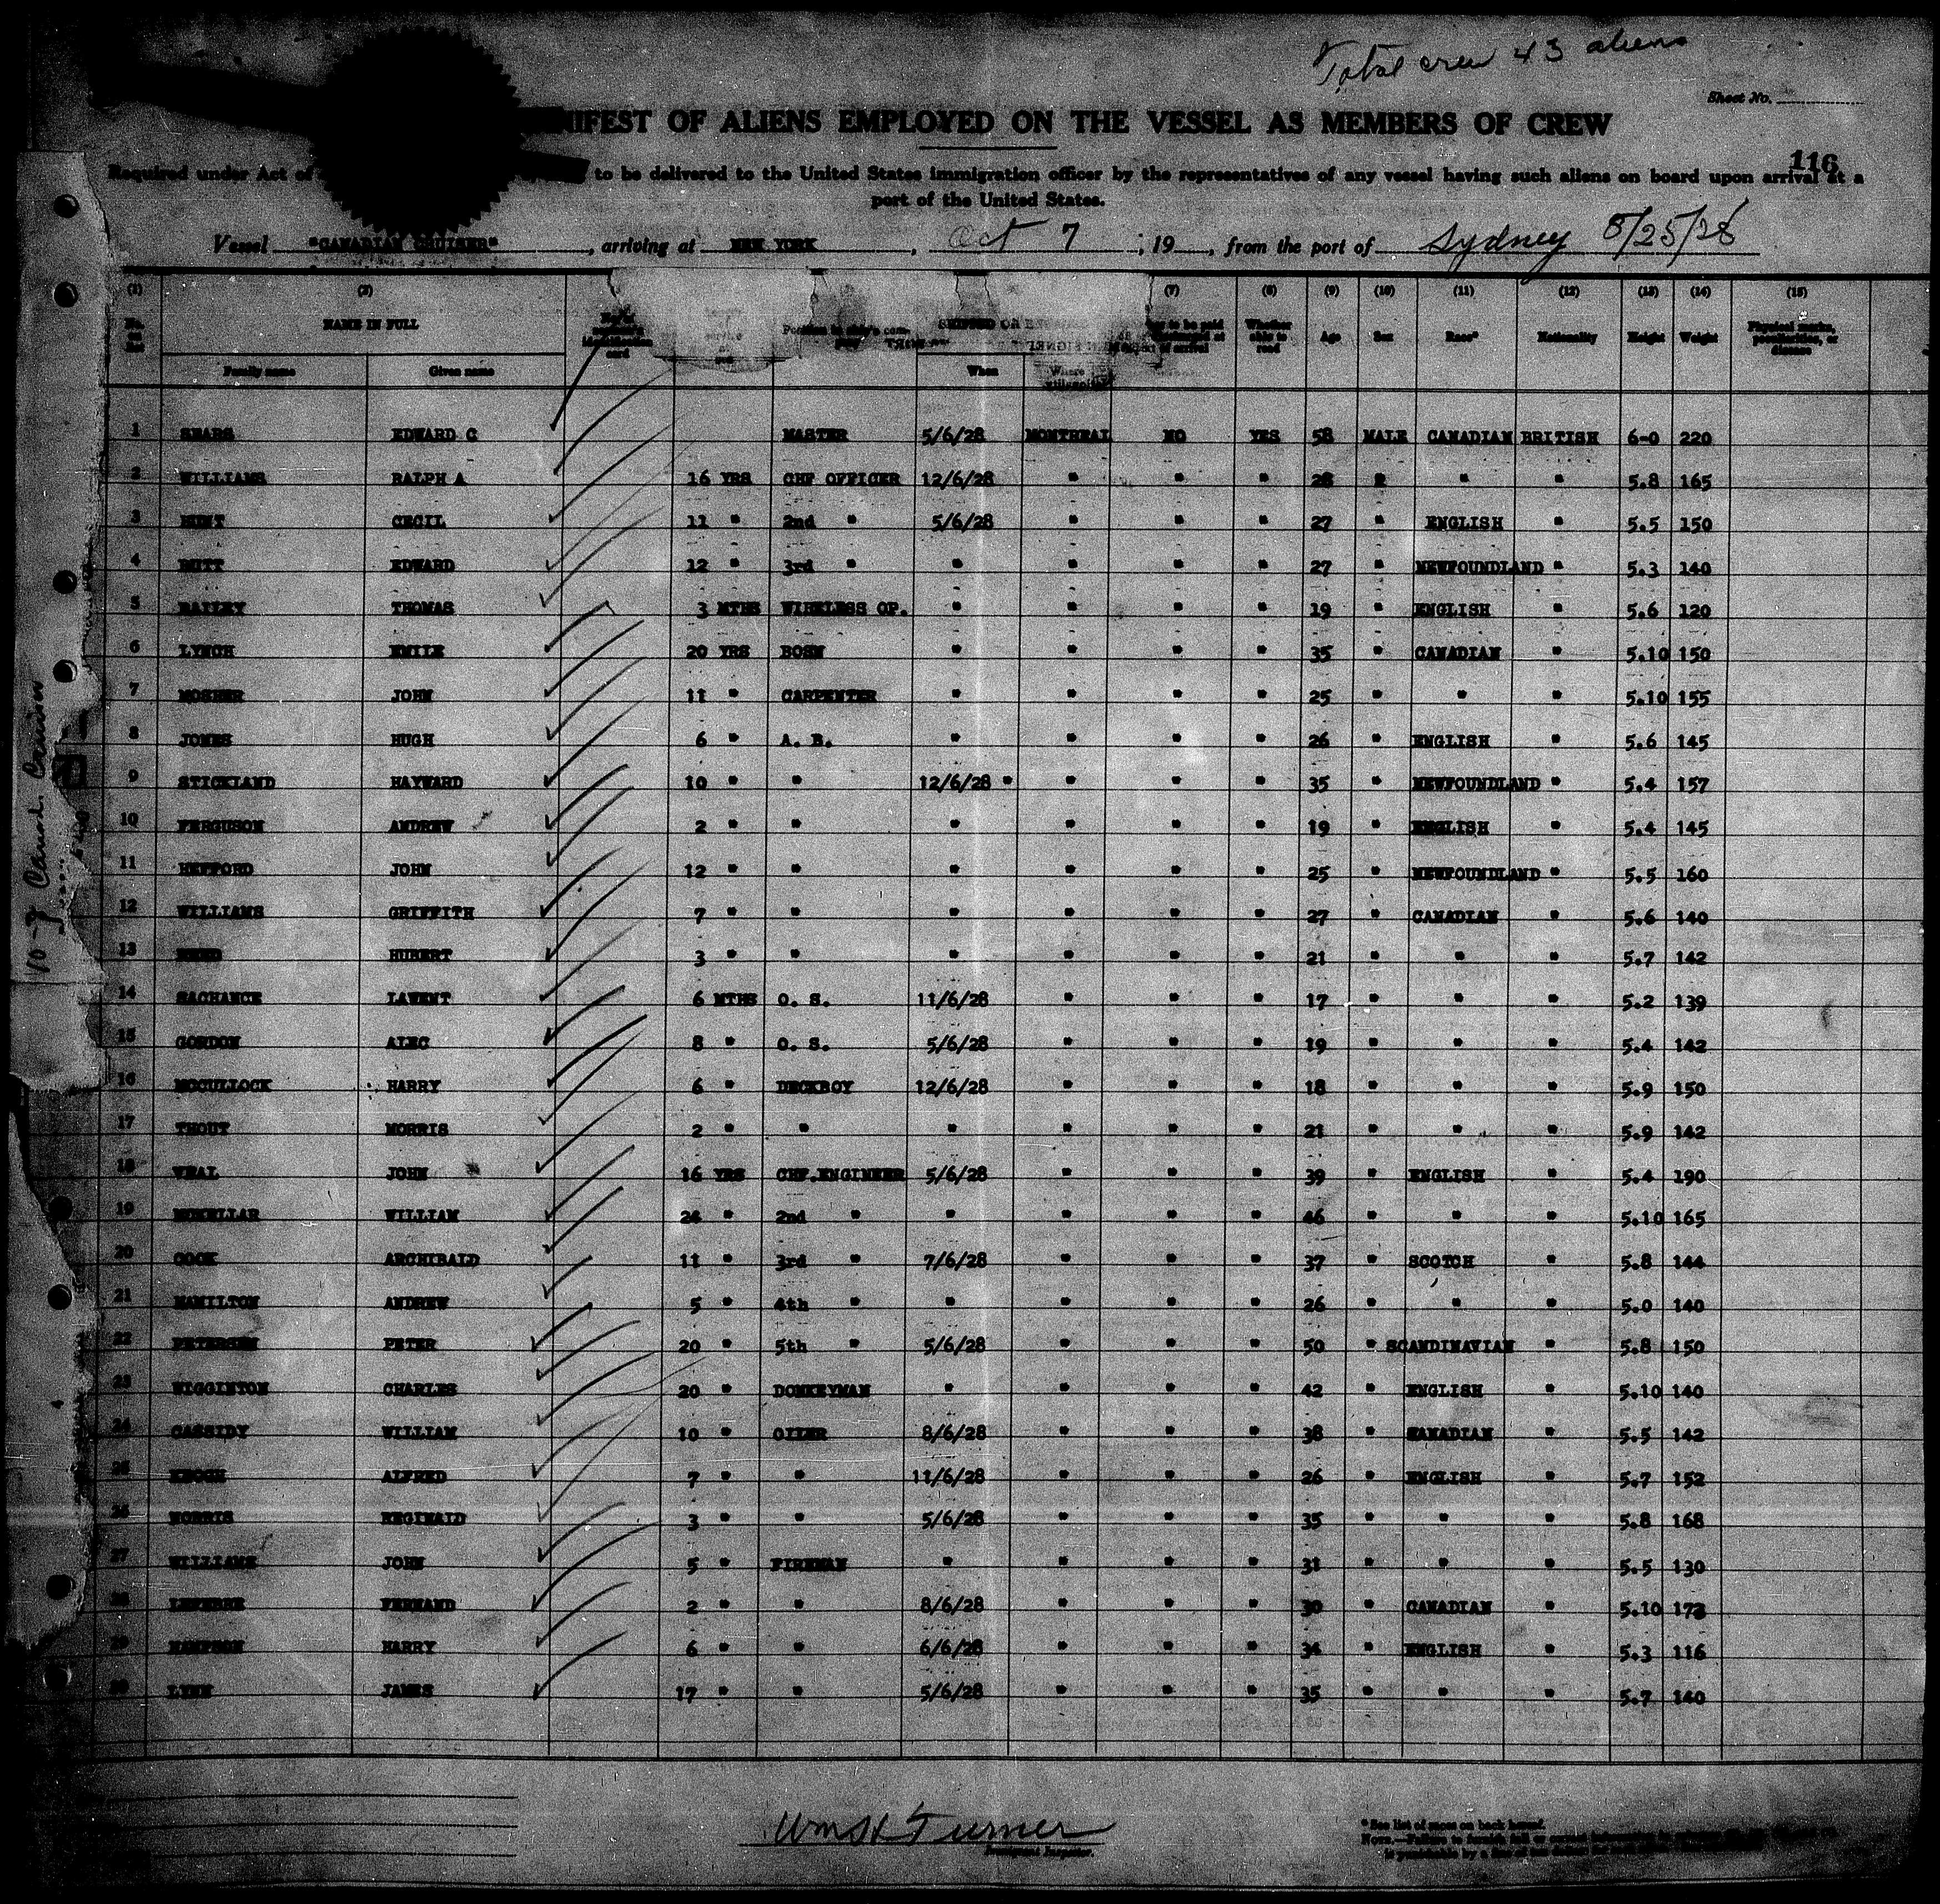 Total crew 43 aliens
Sheet No.
IFEST OF ALIENS EMPLOYED ON THE VESSEL AS MEMBERS OF CREW
116
Required under Act of to be delivered to the United States immigration officer by the representatives of any vessel having such aliens on board upon arrival at a
port of the United States.
Vessel "CANADIAN CRUISER", arriving at NEW YORK, Oct 7, 19, from the port of Sydney 8/25/28
(1) (2) (7) (8) (9) (10) (11) (12) (13) (14) (15)
NAME IN FULL Whether able to read Age Sex Race* Nationality Height Weight Physical marks, peculiarities, or disease
Family name Given name When Where
1 SEARS EDWARD C MASTER 5/6/28 MONTREAL NO YES 58 MALE CANADIAN BRITISH 6-0 220
2 WILLIAMS RALPH A 16 YRS CHF OFFICER 12/6/28 " " " 28 " " " 5.8 165
3 HUNT CECIL 11 " 2nd " 5/6/28 " " " 27 " ENGLISH " 5.5 150
4 BUTT EDWARD 12 " 3rd " " " " " 27 " NEWFOUNDLAND " 5.3 140
5 BAILEY THOMAS 3 MTHS WIRELESS OP. " " " " 19 " ENGLISH " 5.6 120
6 LYNCH EMILE 20 YRS BOSN " " " " 35 " CANADIAN " 5.10 150
7 MOSHER JOHN 11 " CARPENTER " " " " 25 " " " 5.10 155
8 JONES HUGH 6 " A. B. " " " " 26 " ENGLISH " 5.6 145
9 STICKLAND HAYWARD 10 " " 12/6/28 " " " " 35 " NEWFOUNDLAND " 5.4 157
10 FERGUSON ANDREW 2 " " " " " " 19 " ENGLISH " 5.4 145
11 HEFFORD JOHN 12 " " " " " " 25 " NEWFOUNDLAND " 5.5 160
12 WILLIAMS GRIFFITH 7 " " " " " " 27 " CANADIAN " 5.6 140
13 HUBERT 3 " " " " " " 21 " " " 5.7 142
14 SACHANCE LAVENT 6 MTHS O. S. 11/6/28 " " " 17 " " " 5.2 139
15 GORDON ALEC 8 " O. S. 5/6/28 " " " 19 " " " 5.4 142
16 MCCULLOCK HARRY 6 " DECKBOY 12/6/28 " " " 18 " " " 5.9 150
17 THOUT MORRIS 2 " " " " " " 21 " " " 5.9 142
18 VEAL JOHN 16 YRS CHF.ENGINEER 5/6/28 " " " 39 " ENGLISH " 5.4 190
19 MCKELLAR WILLIAM 24 " 2nd " " " " " 46 " " " 5.10 165
20 COOK ARCHIBALD 11 " 3rd " 7/6/28 " " " 37 " SCOTCH " 5.8 144
21 HAMILTON ANDREW 5 " 4th " " " " " 26 " " " 5.0 140
22 PETERSEN PETER 20 " 5th " 5/6/28 " " " 50 " SCANDINAVIAN " 5.8 150
23 WIGGINTON CHARLES 20 " DONKEYMAN " " " " 42 " ENGLISH " 5.10 140
24 CASSIDY WILLIAM 10 " OILER 8/6/28 " " " 38 " CANADIAN " 5.5 142
25 KEOGH ALFRED 7 " " 11/6/28 " " " 26 " ENGLISH " 5.7 152
26 NORRIS REGINALD 3 " " 5/6/28 " " " 35 " " " 5.8 168
27 WILLIAMS JOHN 5 " FIREMAN " " " " 31 " " " 5.5 130
28 LEFEBRE FERNAND 2 " " 8/6/28 " " " 30 " CANADIAN " 5.10 173
29 HAMPSON HARRY 6 " " 6/6/28 " " " 34 " ENGLISH " 5.3 116
30 LYNN JAMES 17 " " 5/6/28 " " " 35 " " " 5.7 140
Wm H Turner
Immigrant Inspector.
*See list of races on back hereof.